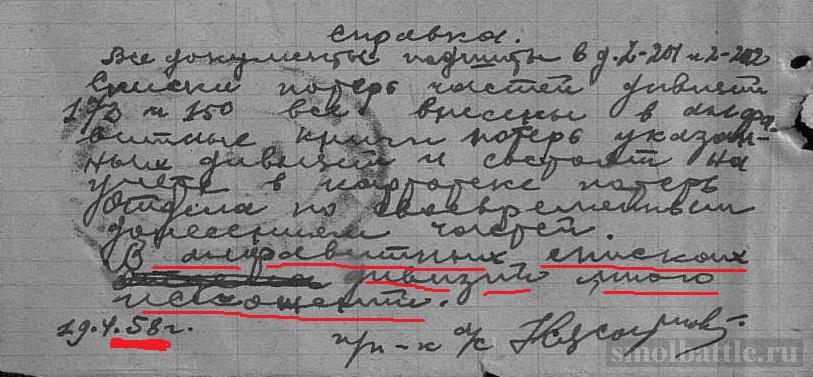 Справка.
Все документы подшиты в д. 2-201 и 2-202
Списки потерь частей дивизий
173 и 150 все внесены в алфа-
витные книги потерь указан-
ных дивизий и состоят на
учете в картотеке потерь
Отдела по своевременным
донесениям частей.
В алфавитных списках
дивизий много
искажений.
29.4.58 г.
п/п-к а/с
smolbattle.ru